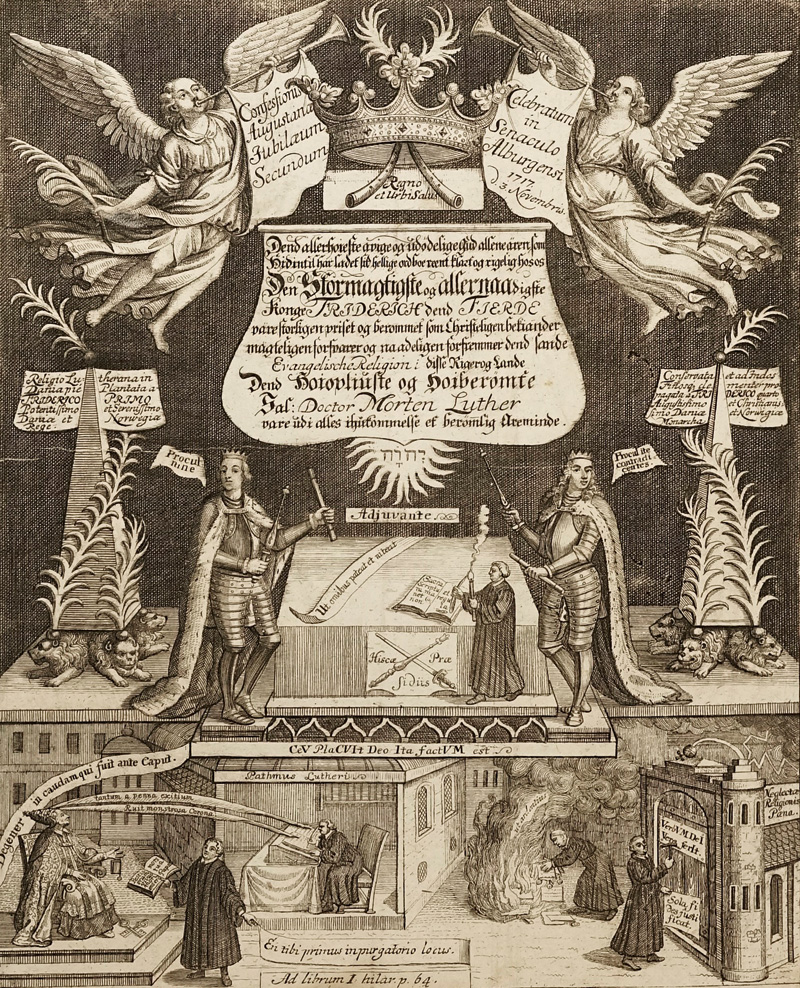 Confessionis
Augustanæ
Jubilæum
Secundum
Celebratum
in
Senaculo
Alburgensi
1717
d. 3. Novembris.
Regno
et Urbi Salus
Dend allerhöieste ævige og udödelige Gud allene æren som
Hid intil har ladet sit hellige ord bor reent klart og rigelig hos os
Den Stormagtigste og allernaadigste
Konge FRIDERICH dend FIERDE
være storligen priset og berömmet som Christeligen bekiander
mægteligen forsvarer og naadeligen forfremmer dend sande
Evangelische Religion i disse Riger og Lande
Dend Höioplyüste og Höiberömte
Sal: Doctor Morten Luther
være udi alles ihukommelse et berömlig Areminde.
Religio Lu
therana in
Dania pie
Plantata a
FRIDERICO
PRIMO
Potentissimo
et Serenissimo
Daniæ et
Norwegiæ
Rege
Conservata
et ad Indos
FRI
DERICO quarto
Augustissimo
et Christianiss
simo Daniæ
et Norwegiæ
Monarcha
Procul
hinc
Procul ite
contradi
centes.
יהוה
Adjuvante
Ut omnibus pateat et niteat
Hisce Præ
sidiis
CeV PlaCVIt Deo Ita factVM est
Degener in caudam qui fuit ante Caput.
tantum a penna exitium
Ruit monstrosa Corona
Pathmus Lutheri
Neglectæ
Religionis
Pæna.
VerbVM DeI
Sola fi
des justi
ficat.
En tibi primus in purgatorio locus.
Ad librum I hilar. p. 64.